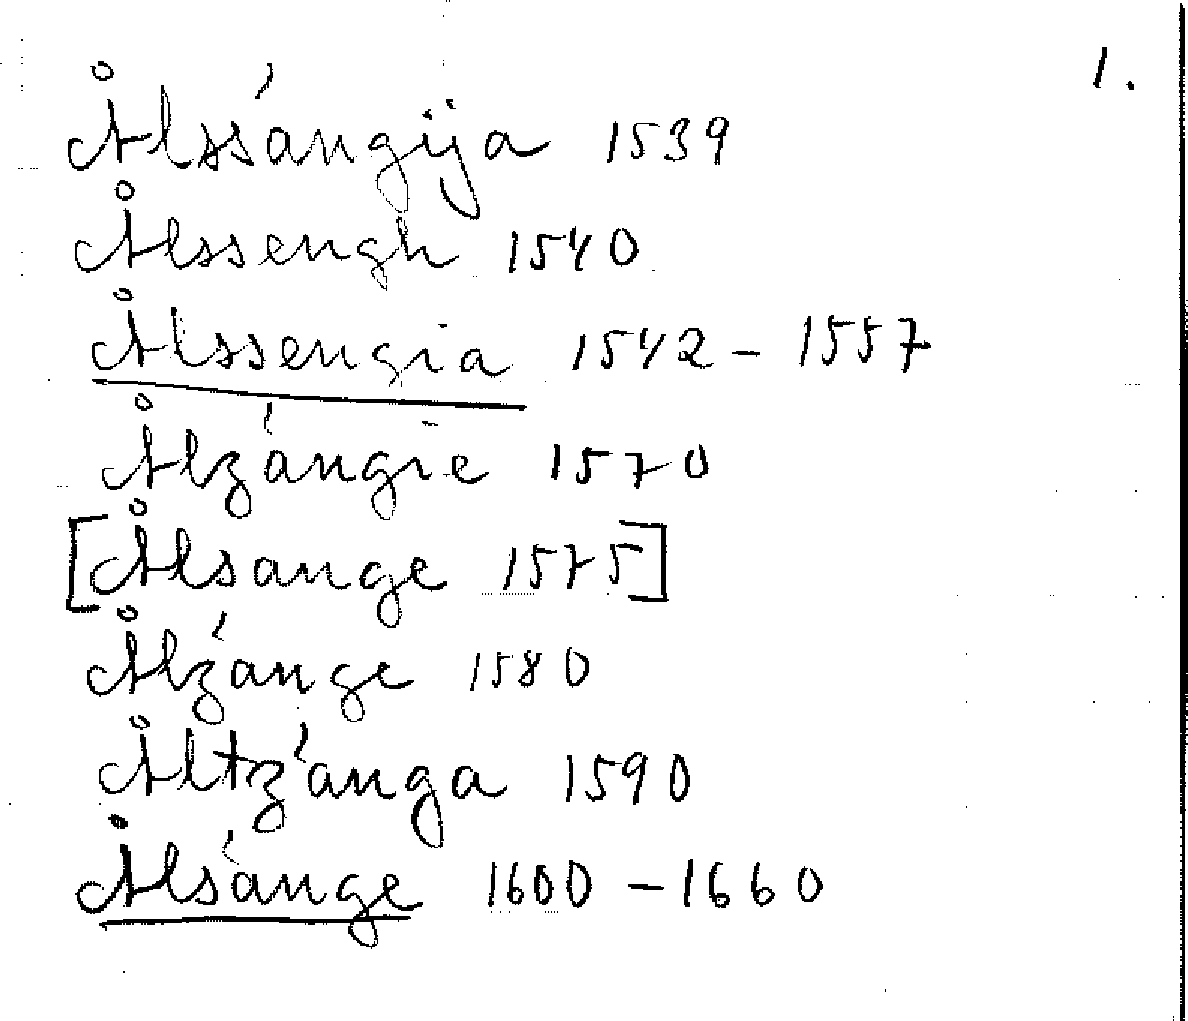 1.
Ålssángÿa 1539
Ålssengh 1540
Ålssengia 1542 - 1557
Ålzángie 1570
[Ålsange 1575]
Ålzánge 1580
Åltzánga 1590
Ålsánge 1600 - 1660